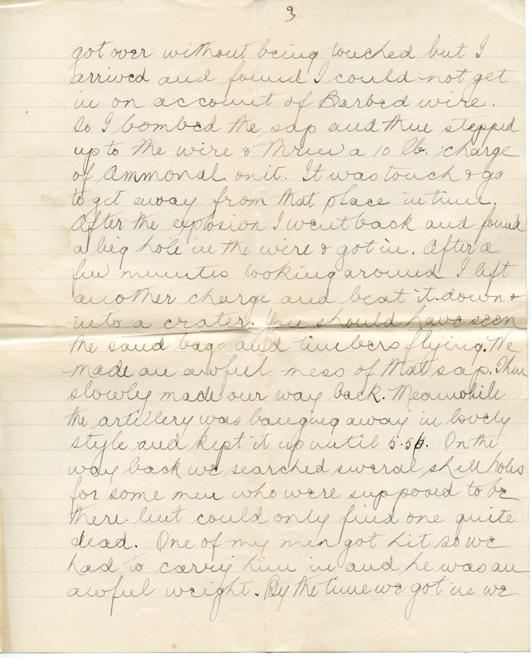 3
got over without being touched but I
arrived and found I could not get
in on account of Barbed wire.
So I bombed the sap and then stepped
up to the wire & threw a 10 lb. charge
of Ammonal on it. It was touch & go
to get away from that place in time.
After the explosion I went back and found
a big hole in the wire & got in. After a
few minutes looking around I left
another charge and beat it down &
into a crater. You should have seen
the sand bags and timbers flying. We
made an awful mess of that sap. Then
slowly made our way back. Meanwhile
the artillery was banging away in lovely
style and kept it up until 5.56. On the
way back we searched several shell holes
for some men who were supposed to be
there but could only find one quite
dead. One of my men got hit so we
had to carry him in and he was an
awful weight. By the time we got in we